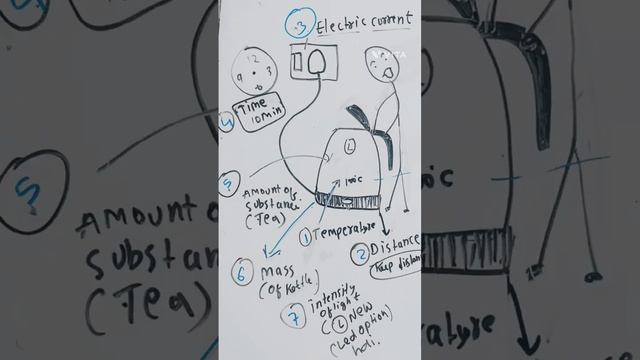 3 Electric current
12
9 3
6
4 Time
10 min
L
5 AMOUNT OF
SUBSTANCE
(Tea)
100°C
1 Temperature
2 Distance
Keep distan
6 Mass
(Of Kettle)
7 intensity
Of light
(L New
(Led option)
5
AMOUNT OF
SUBSTANC
(Tea)